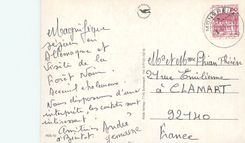 Magnifique
séjour en
Allemagne et
visite de la
Forêt Noire.
Accueil chaleureux
Nous disposons d'une
interprète les contacts sont
intéressants.
Amitiés André
à Bientôt
Mr et Mme Phan Thiên
21 rue Emilienne
à CLAMART
92140
France